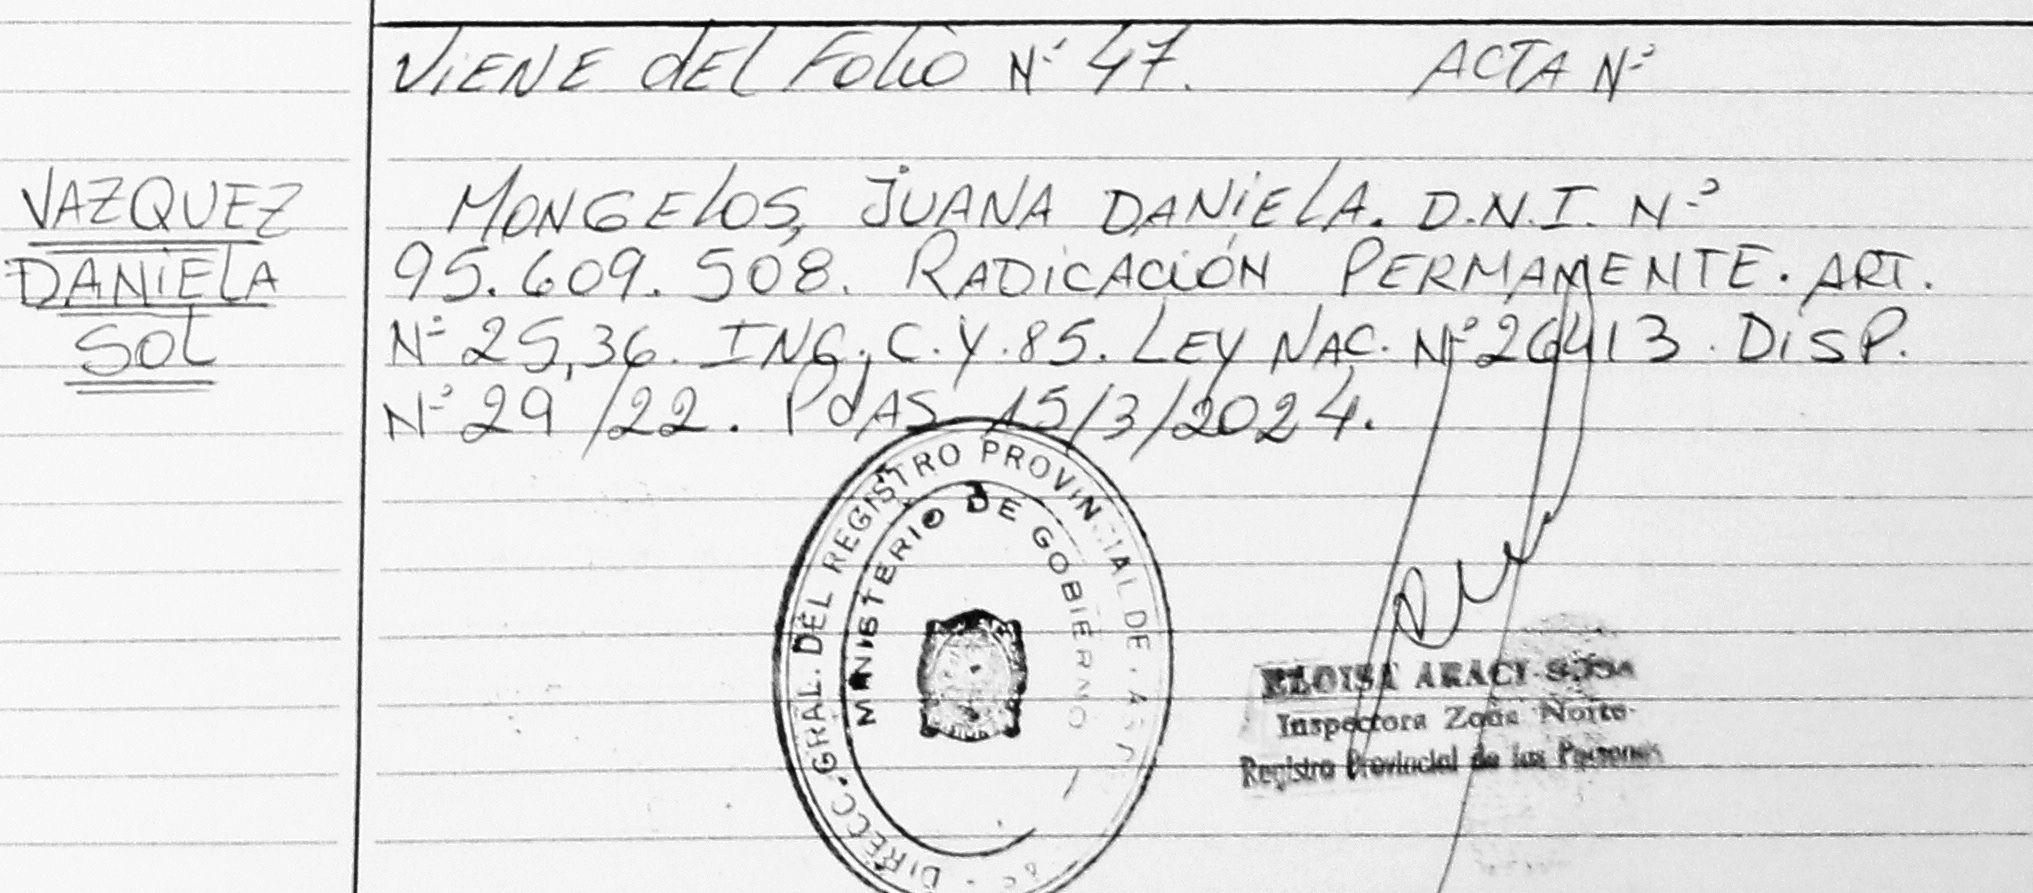 VIENE dEL FOLIO Nº 47. ACTA Nº
VAZQUEZ
DANIELA
SOL
MONGELOS, JUANA DANIELA. D.N.I. Nº
95.609.508. RADICACIÓN PERMAMENTE. ART.
Nº 25,36. ING., C. Y. 85. LEY NAC. Nº 26413. DISP.
Nº 29/22. PdAS 15/3/2024.
DIRECC. GRAL. DEL REGISTRO PROVINCIAL DE
MINISTERIO DE GOBIERNO
ELOISA ARACI SOSA
Inspectora Zona Norte
Registro Provincial de las Personas